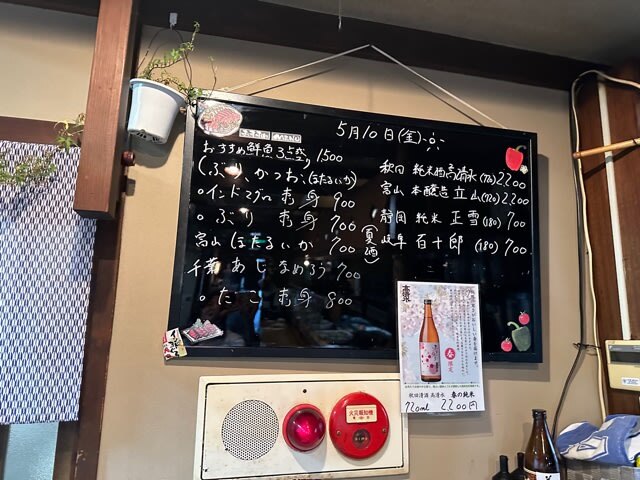 5月10日(金)
おすすめ鮮魚3点盛 1500
(ぶり、かつお、ほたるいか)
○インドマグロ 刺身 900
○ ぶり 刺身 700
富山 ほたるいか 700
千葉 あじ なめろう 700
○ たこ 刺身 800
秋田 純米酒高清水(720) 2,200
富山 本醸造 立山(720) 2,200
静岡 純米 正雪(180) 700
岐阜 百十郎 (180) 700
(夏酒)
高清水
春
限定
秋田清酒 高清水 春の純米
720ml 2,200円
火災報知機